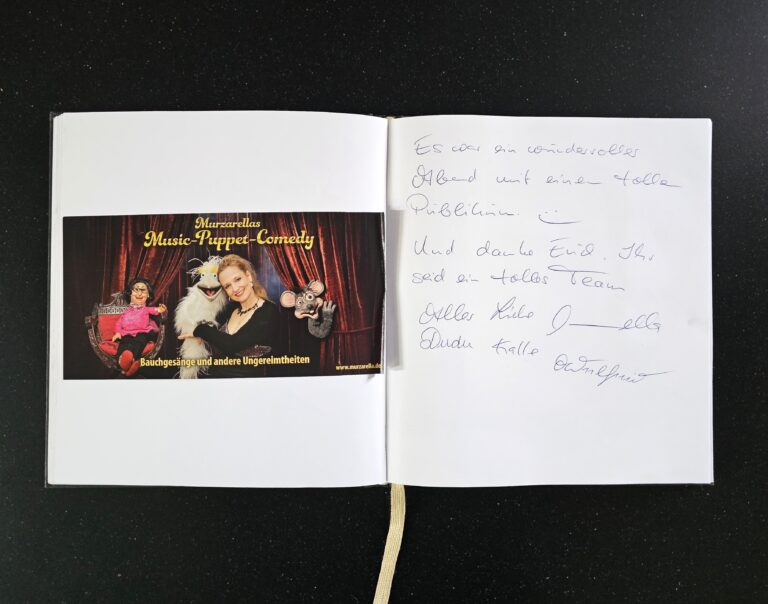 Murzarellas
Music-Puppet-Comedy
Bauchgesänge und andere Ungereimtheiten
www.murzarella.de
Es war ein wundervoller
Abend mit einem tollen
Publikum.
Und danke Euch. Ihr
seid ein tolles Team
Alles Liebe
Dudu Kalle